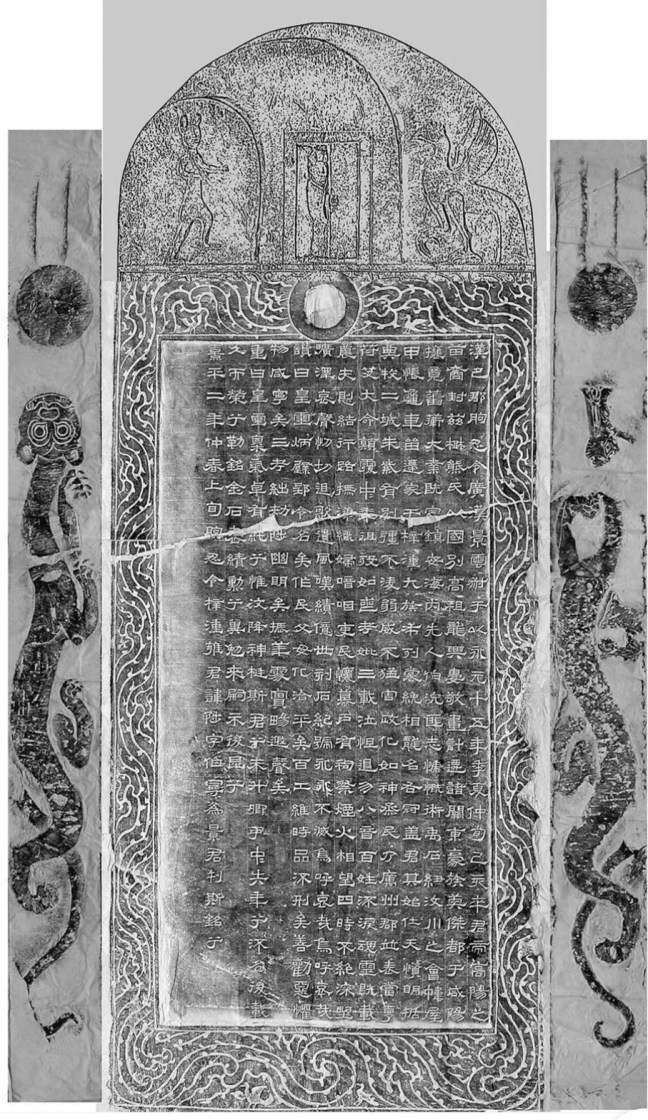 漢巴郡朐忍令廣漢景雲叔于以永元十五年季夏仲旬己亥卒君帝高陽之
苗裔封茲楚熊氏以國別高祖龍興婁敬畫計遷諸關東豪族英傑都于咸陽
攘竟蕃衛大業既定鎮安海內先人伯沇匪志慷慨術禹石紐汶川之會幃屋
甲帳龜車留遰家于梓潼九族布列裳絻相襲名右冠盖君其始仕天資明哲
典牧二城朱紫有別強不淩弱威不猛害政化如神烝民乃厲州郡並表當亨
符艾大命顛覆中年徂歿如喪考妣三載泣怛遏勿八音百姓流淚魂靈既載
農夫惻結行路撫涕織婦喑咽吏民懷慕戶有祠祭煙火相望四時不絕深野
曠澤哀聲忉切追歌遺風嘆績億世刻石紀號永永不滅烏呼哀哉烏呼哀哉
讚曰皇靈炳璧郢令名矣作民父母化洽平矣百工維時品流刑矣善勸惡懼
物咸寧矣三考絀勑陟幽明矣振華處實暘遐聲矣
重曰皇靈稟氣卓有純兮惟汶降神梃斯君兮未升卿尹中失年兮流名後載
久而榮兮勒銘金石表績勳兮冀勉來嗣示後昆兮
熹平二年仲春上旬朐忍令梓潼雍君諱陟字伯曼為景君刊斯銘兮